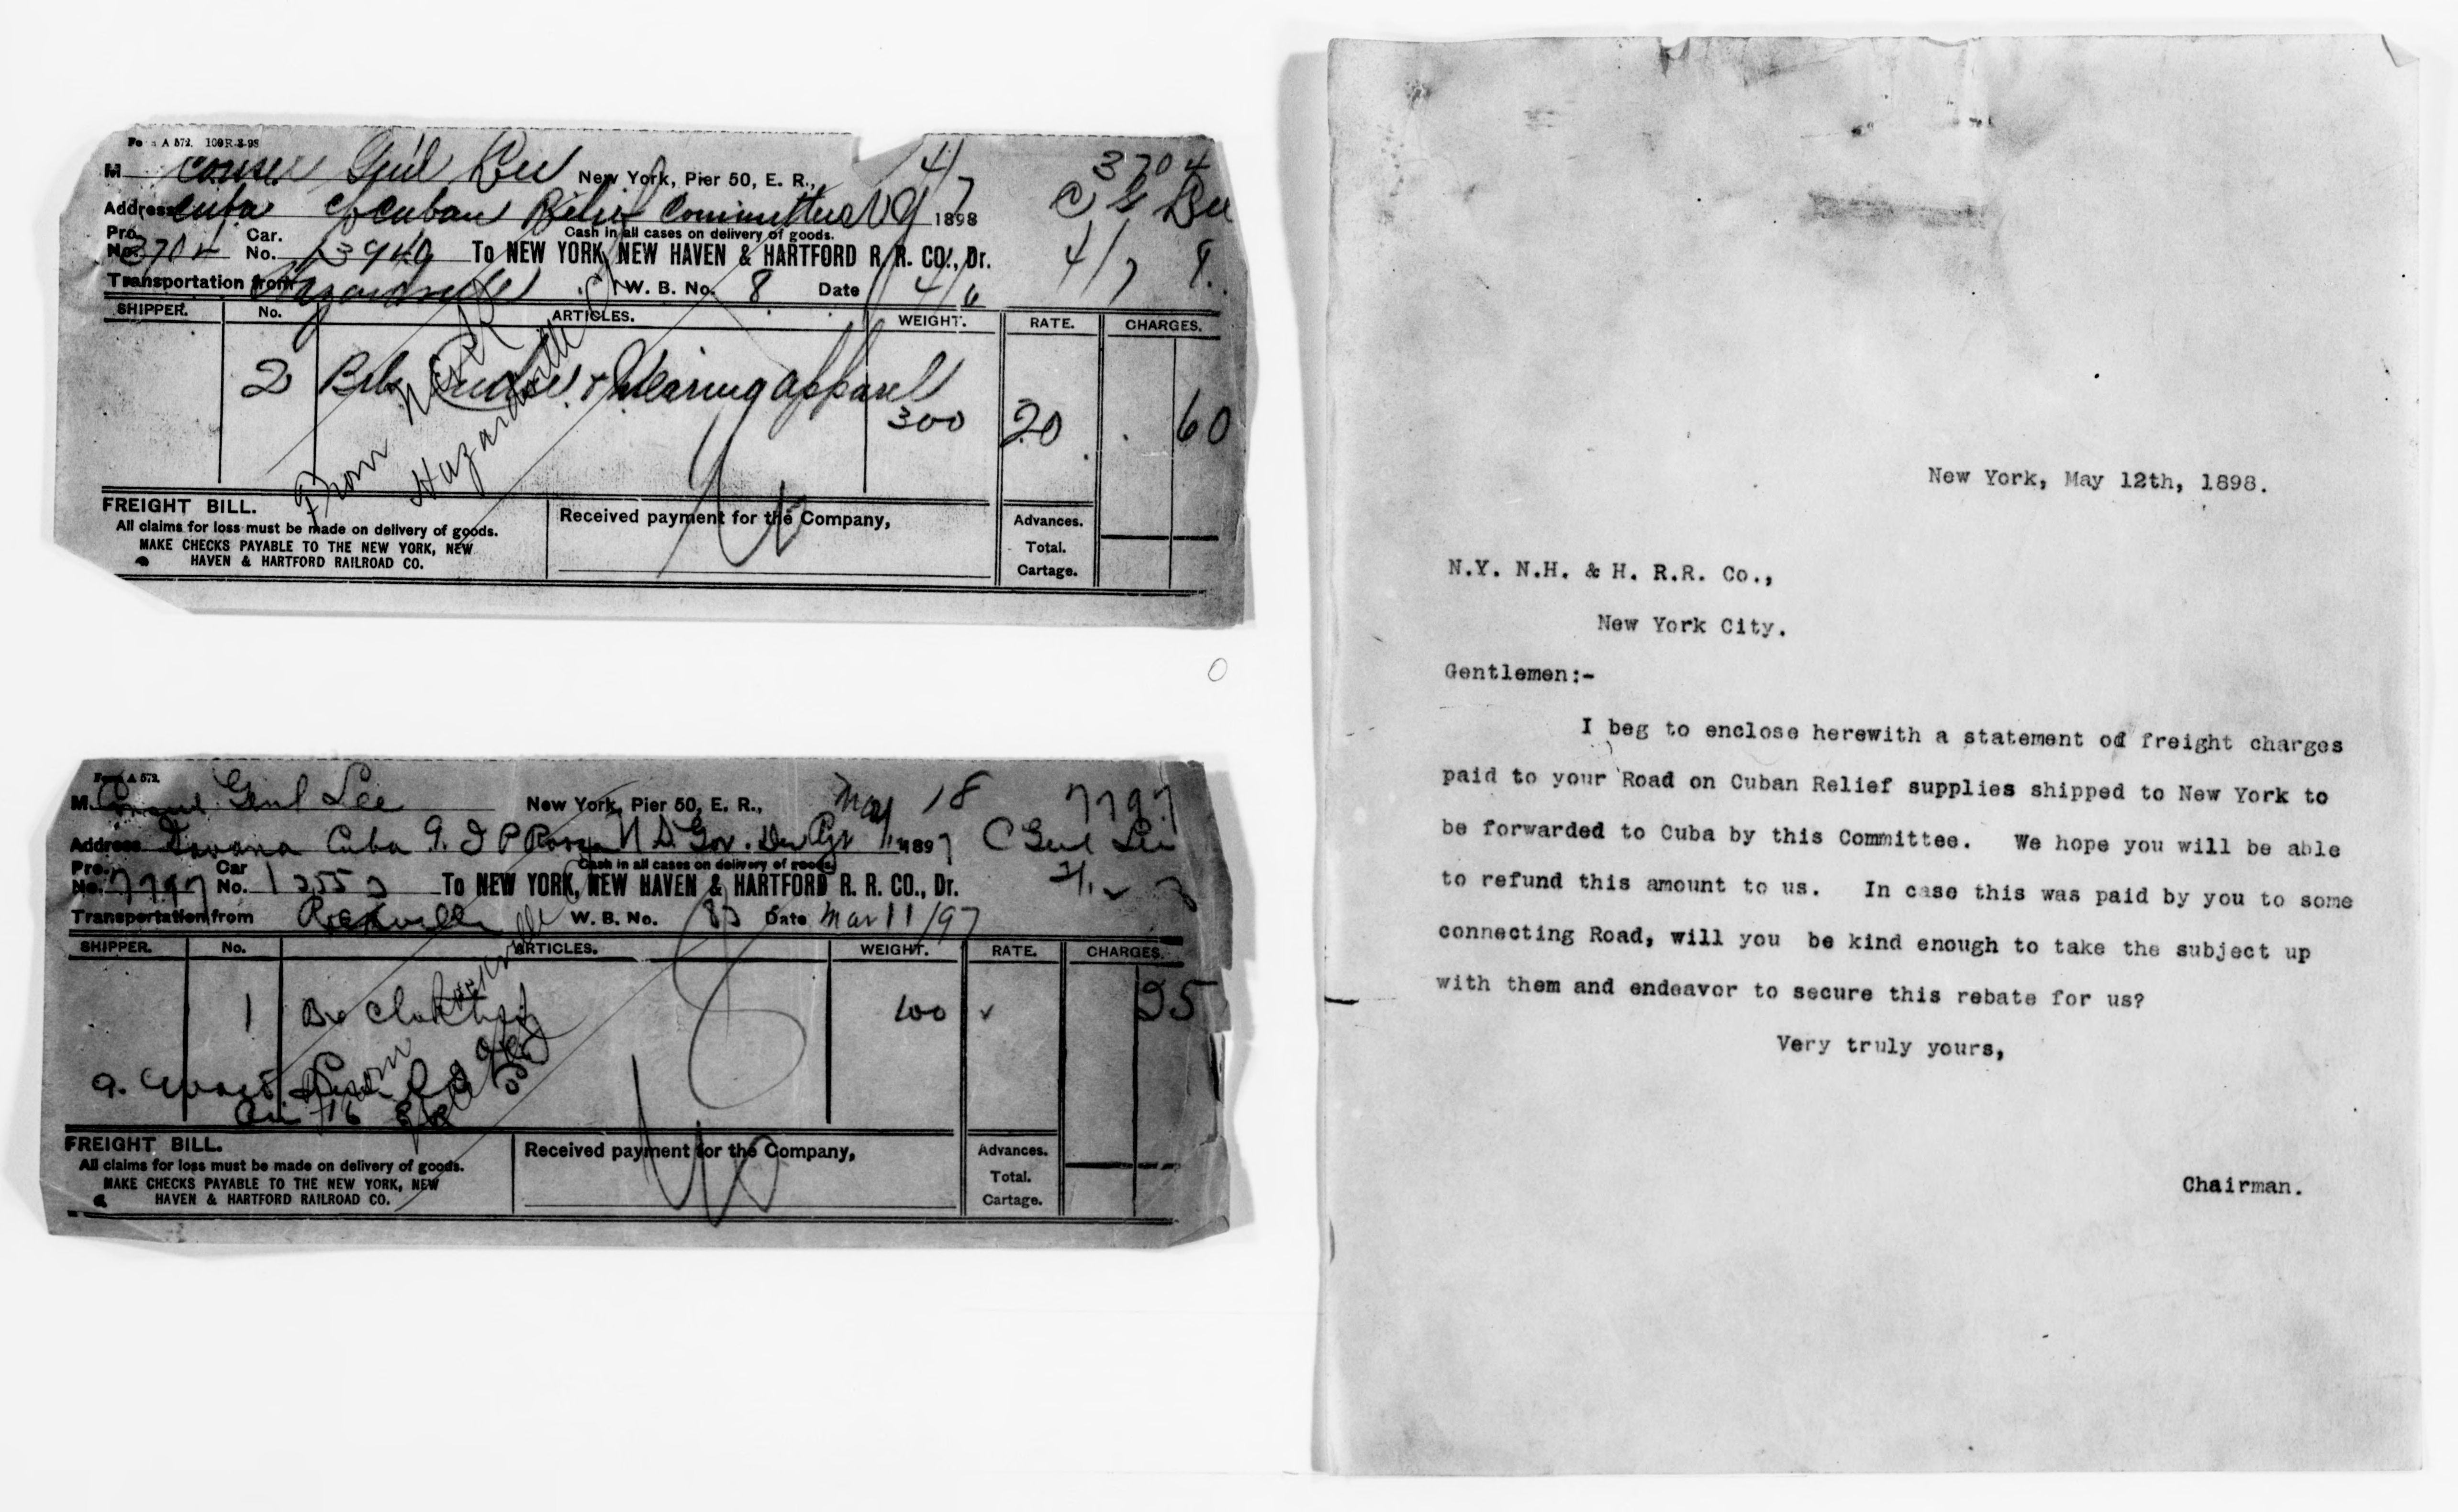 Form A 572. 100 R-3-98
M Consul Gen'l Lee New York, Pier 50, E. R., 4/7 3704
Address Cuba c/o Cuban Relief Committee 1898 C G Lee
Cash in all cases on delivery of goods.
Pro. No. 3704 Car. No. 13940 To NEW YORK, NEW HAVEN & HARTFORD R. R. CO., Dr. 4/7
Transportation from Hazardville W. B. No. 8 Date 4/6
SHIPPER. No. ARTICLES. WEIGHT. RATE. CHARGES.
2 Bxs & Wearing apparel
300 20 60
From
Hazardville
FREIGHT BILL. Received payment for the Company, Advances.
All claims for loss must be made on delivery of goods.
MAKE CHECKS PAYABLE TO THE NEW YORK, NEW Total.
HAVEN & HARTFORD RAILROAD CO. Cartage.
Form A 572.
M Consul Genl Lee New York, Pier 50, E. R., 18 7797
Address Havana Cuba 1897 C Genl Lee
Cash in all cases on delivery of goods.
Pro. No. 7797 Car No. To NEW YORK, NEW HAVEN & HARTFORD R. R. CO., Dr.
Transportation from Rockville W. B. No. 83 Date Mar 11/97
SHIPPER. No. ARTICLES. WEIGHT. RATE. CHARGES.
1 Bx Clothing 100 25
From
FREIGHT BILL. Received payment for the Company, Advances.
All claims for loss must be made on delivery of goods.
MAKE CHECKS PAYABLE TO THE NEW YORK, NEW Total.
HAVEN & HARTFORD RAILROAD CO. Cartage.
New York, May 12th, 1898.
N.Y. N.H. & H. R.R. Co.,
New York City.
Gentlemen:-
I beg to enclose herewith a statement of freight charges
paid to your Road on Cuban Relief supplies shipped to New York to
be forwarded to Cuba by this Committee. We hope you will be able
to refund this amount to us. In case this was paid by you to some
connecting Road, will you be kind enough to take the subject up
with them and endeavor to secure this rebate for us?
Very truly yours,
Chairman.